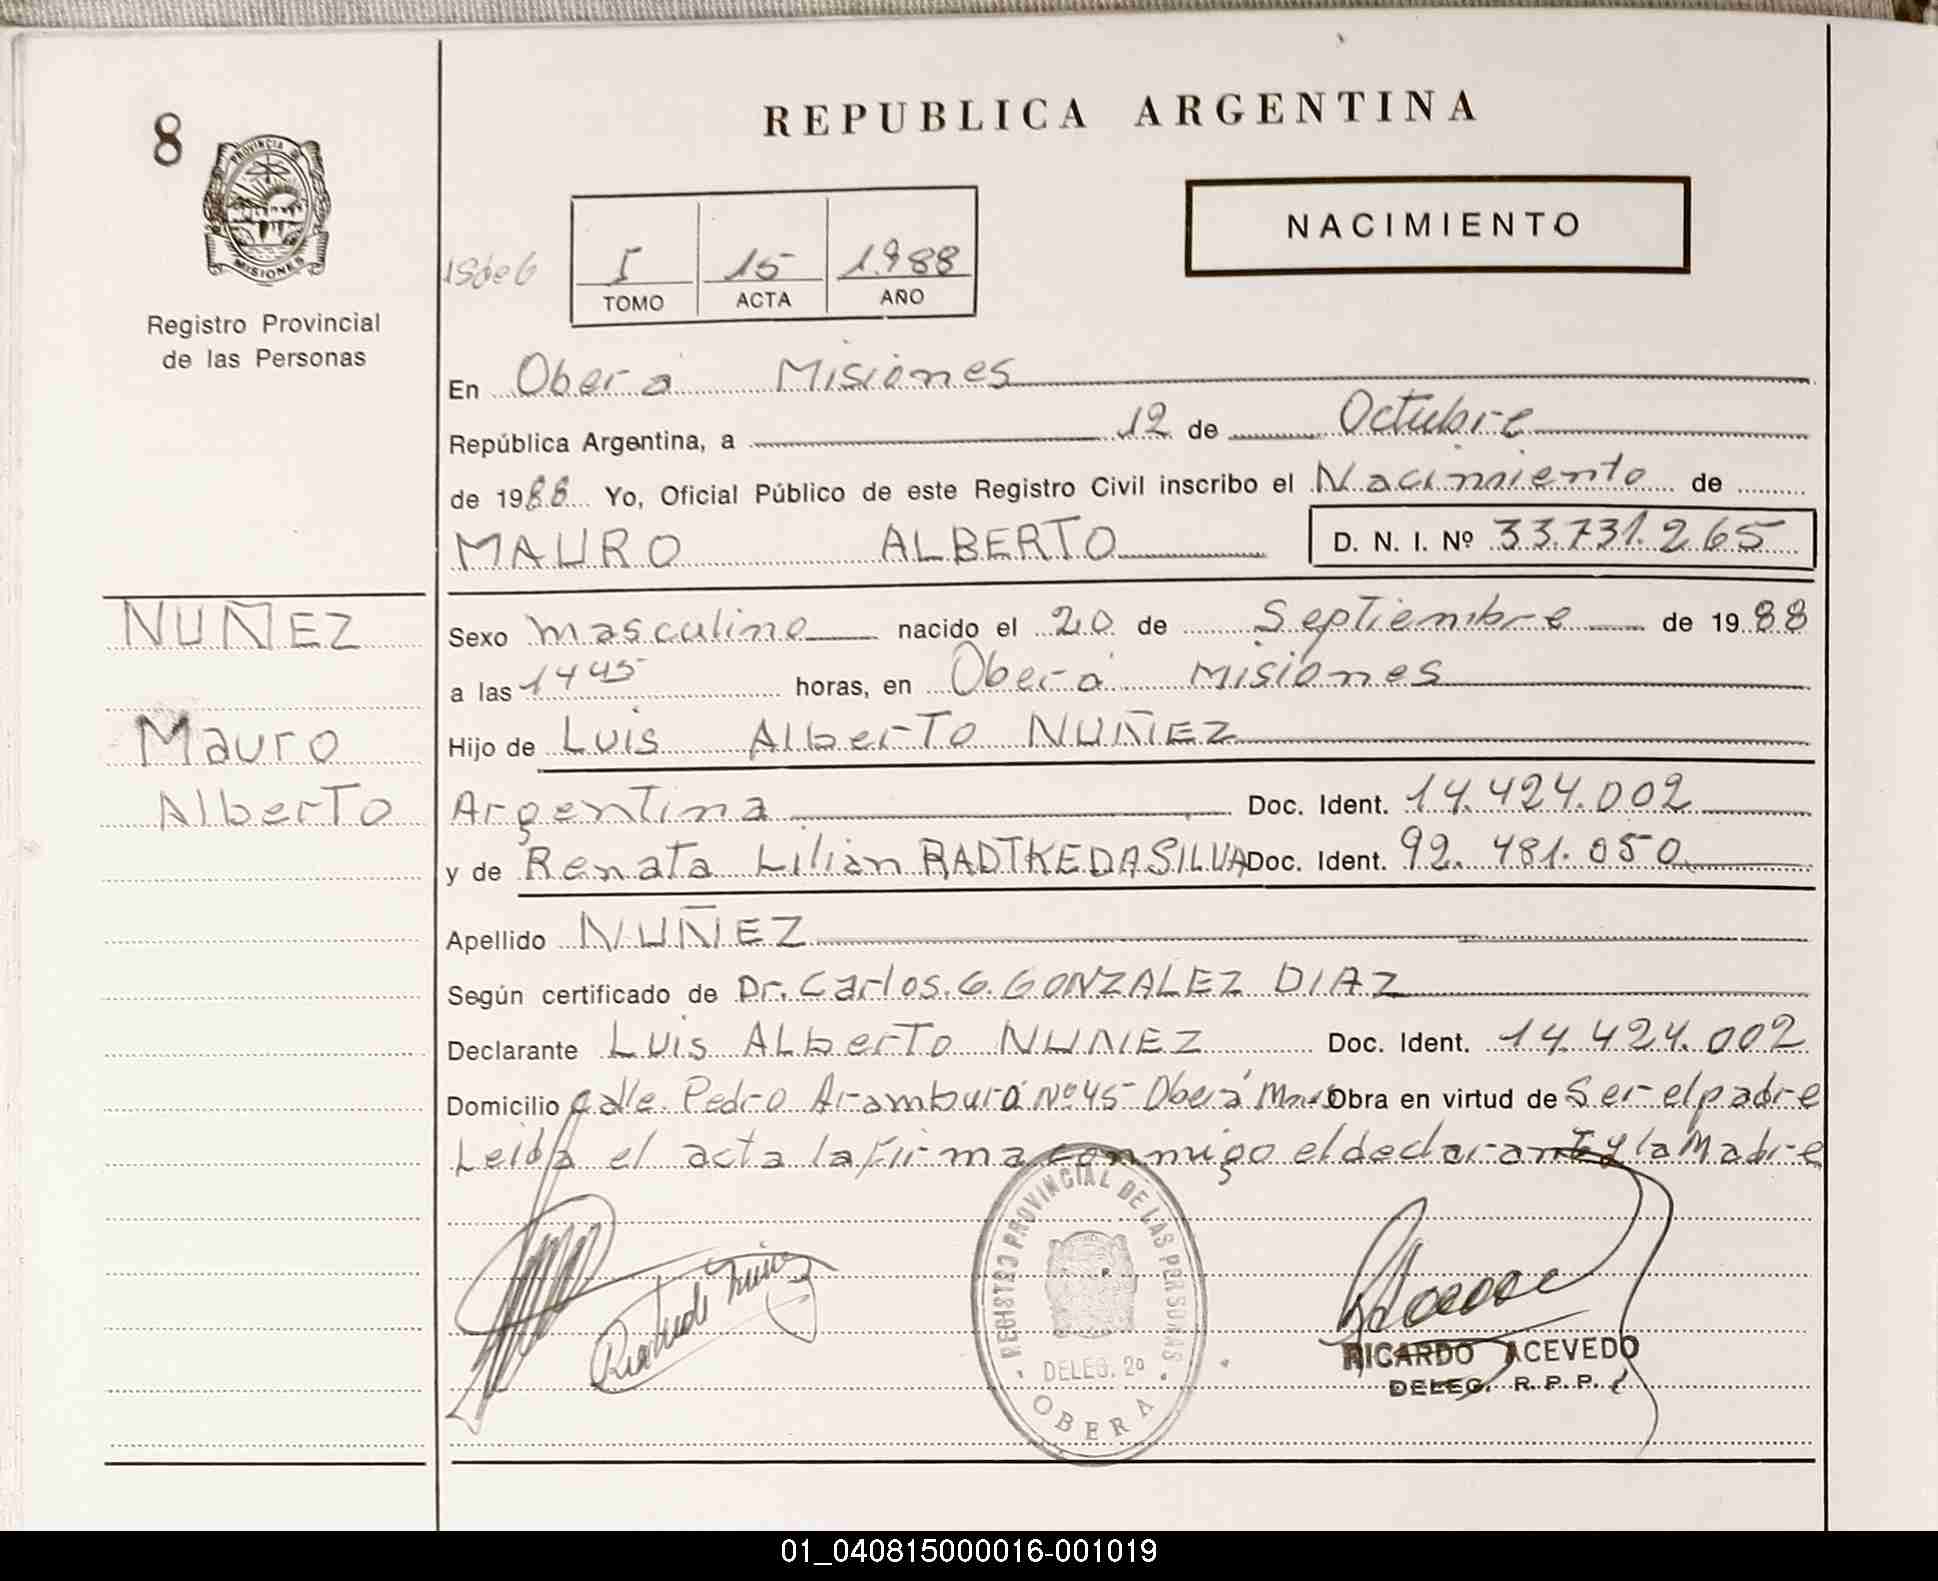 REPUBLICA ARGENTINA
8
PROVINCIA DE
MISIONES
Registro Provincial
de las Personas
NACIMIENTO
I 15 1.988
TOMO ACTA AÑO
En Oberá Misiones
República Argentina, a 12 de Octubre
de 1988 Yo, Oficial Público de este Registro Civil inscribo el Nacimiento de
MAURO ALBERTO D. N. I. Nº 33.731.265
NUÑEZ
Mauro
Alberto
Sexo masculino nacido el 20 de Septiembre de 1988
a las 1445 horas, en Oberá Misiones
Hijo de Luis Alberto NUÑEZ
Argentina Doc. Ident. 14.424.002
y de Renata Lilian RADTKE DA SILVA Doc. Ident. 92.481.050
Apellido NUÑEZ
Según certificado de Dr. Carlos. G. GONZALEZ DIAZ
Declarante Luis ALberTo NUNEZ Doc. Ident. 14.424.002
Domicilio calle Pedro Aramburú Nº45 Oberá Obra en virtud de Ser el padre
Leida el acta la Firma conmigo el declarante y la Madre
REGISTRO PROVINCIAL DE LAS PERSONAS
DELEG. 2a
OBERA
RICARDO ACEVEDO
DELEG. R. P. P.
01_040815000016-001019